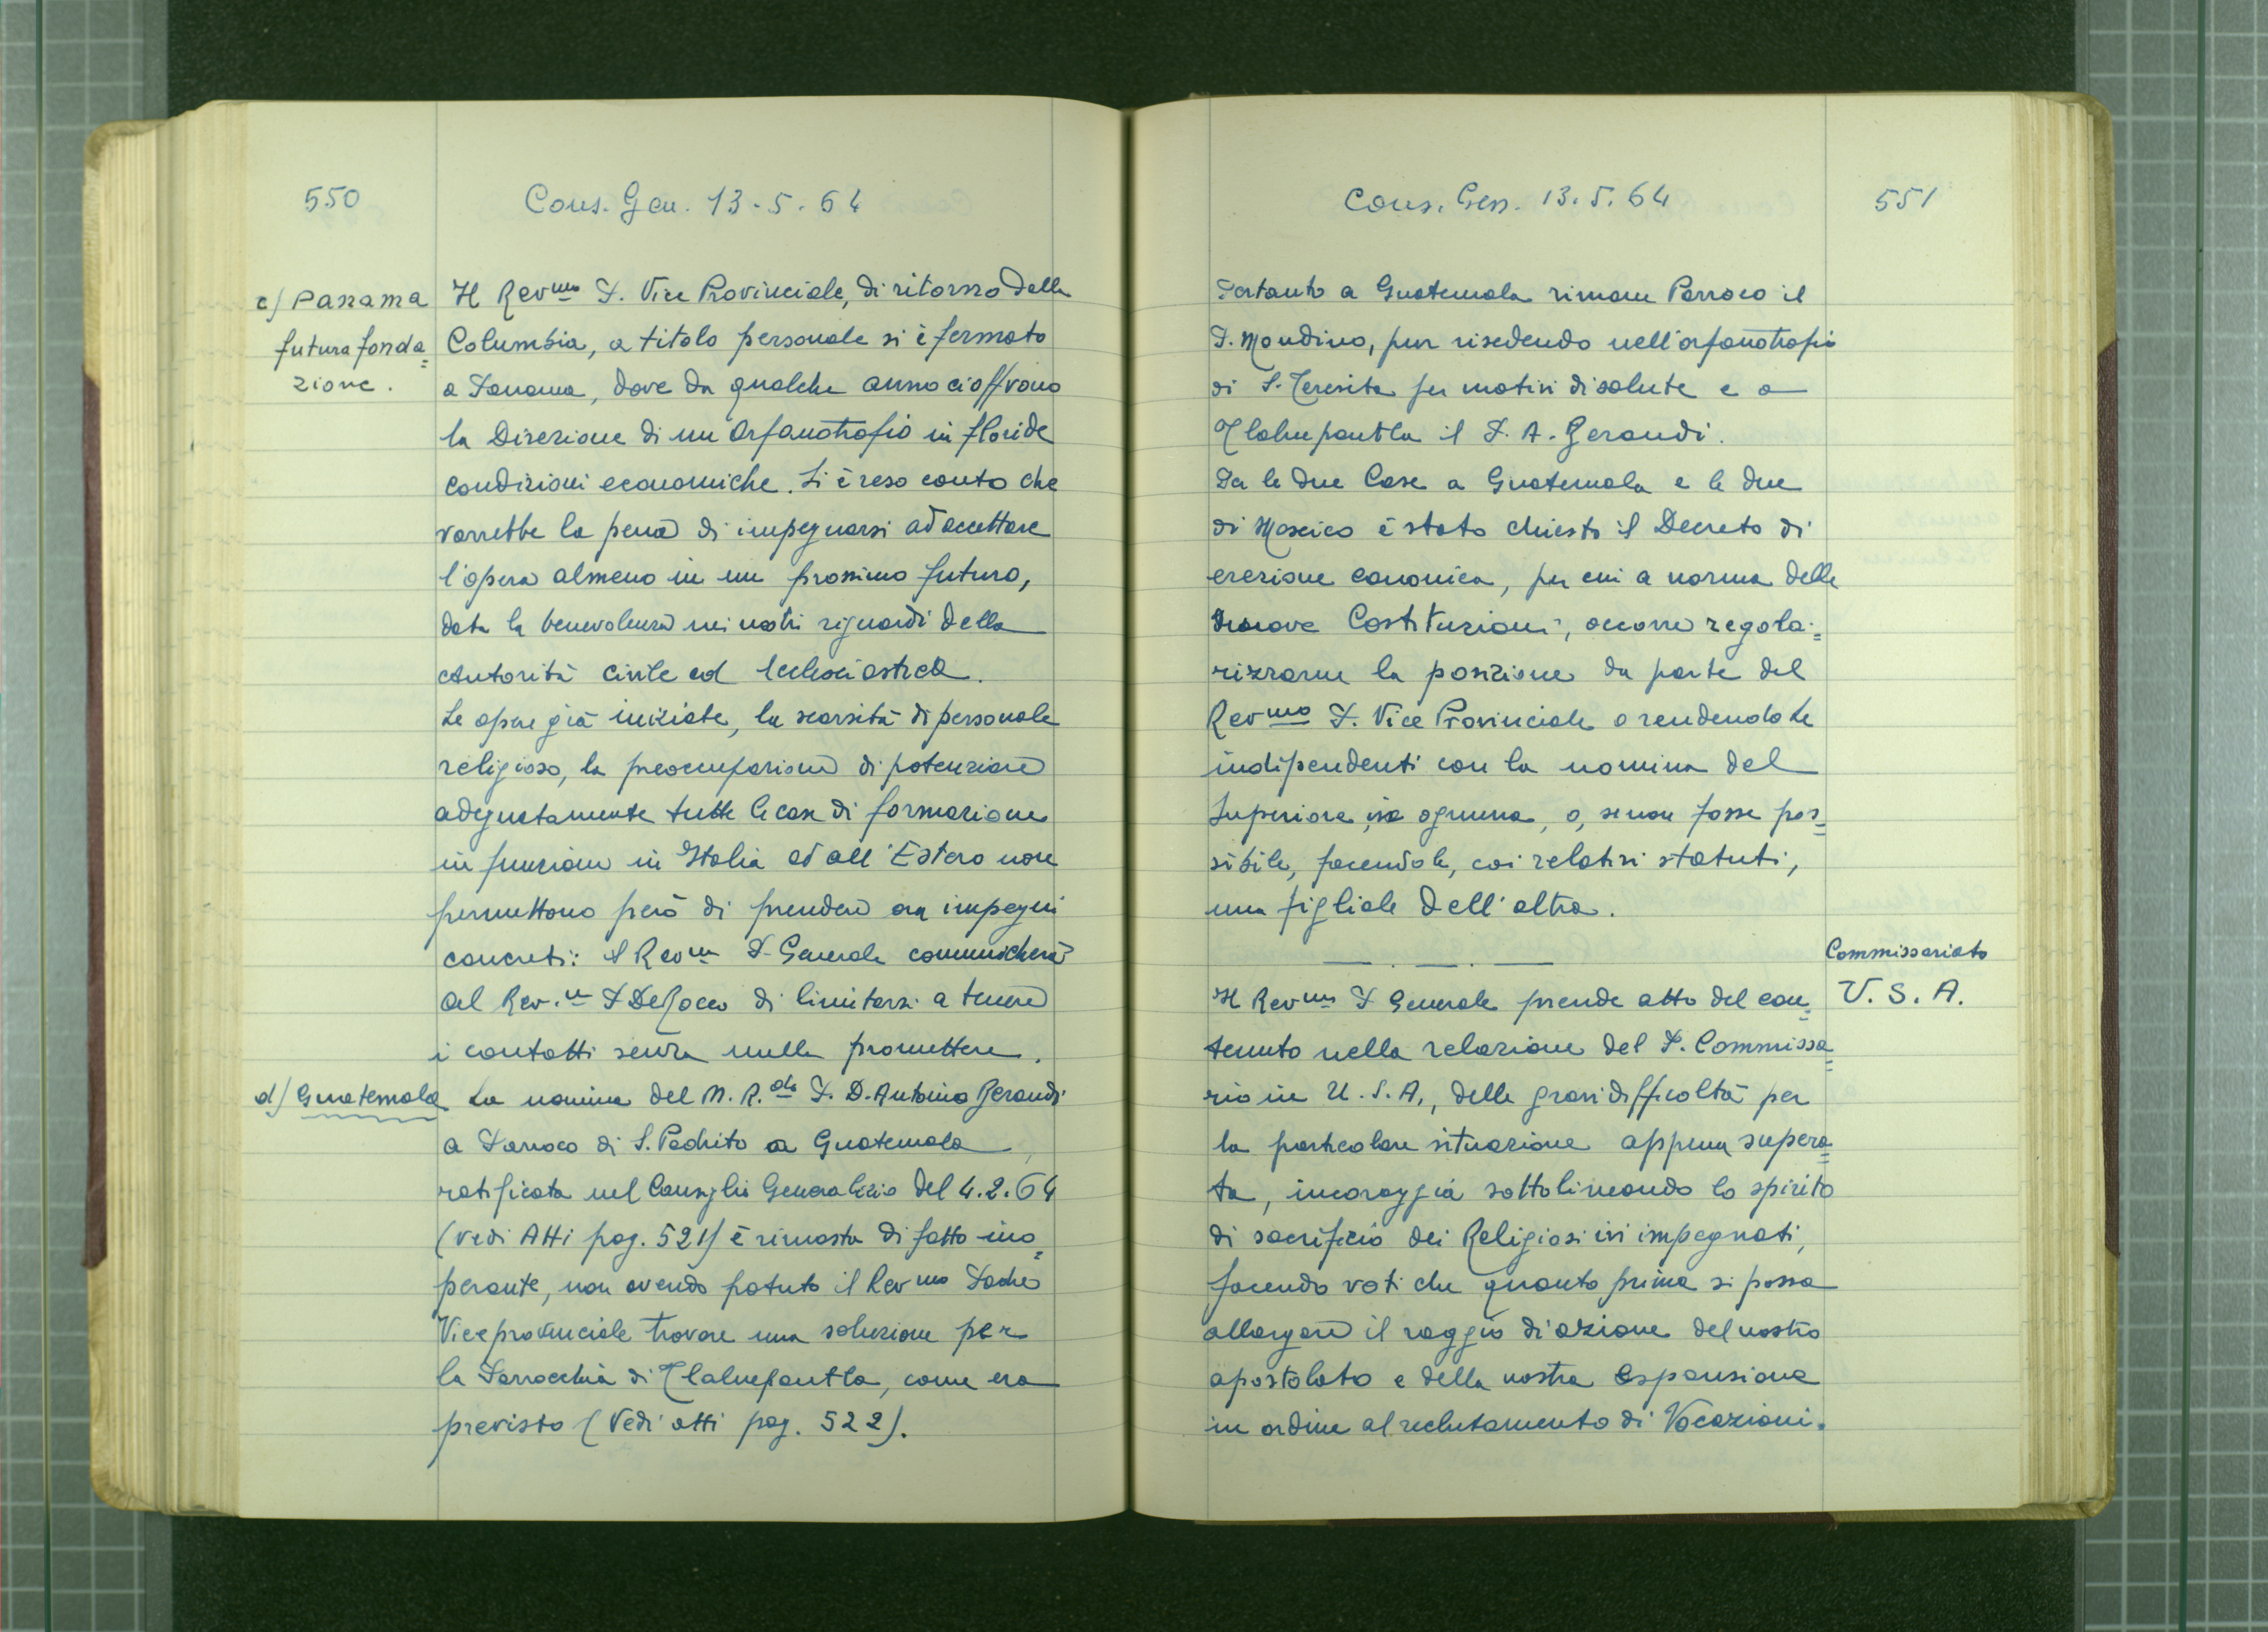 550
Cons. Gen. 13.5.64
c) Panama
futura fonda=
zione.
Il Rev.mo P. Vice Provinciale, di ritorno dalla
Columbia, a titolo personale si è fermato
a Panama, dove da qualche anno ci offrono
la Direzione di un Orfanotrofio in floride
condizioni economiche. Si è reso conto che
varrebbe la pena di impegnarsi ad accettare
l'opera almeno in un prossimo futuro,
data la benevolenza nei nostri riguardi della
Autorità civile ed ecclesiastica.
Le opere già iniziate, la scarsità di personale
religioso, la preoccupazione di potenziare
adeguatamente tutte le case di formazione
in funzione in Italia ed all'Estero non
permettono però di prendere ora impegni
concreti: il Rev.mo P. Generale comunicherà
al Rev.mo P. De Rocco di limitarsi a tenere
i contatti senza nulla promettere.
d) Guatemala
La nomina del M. R.do P. D. Antonio Gerandi
a Parroco di S. Pedrito a Guatemala,
ratificata nel Consiglio Generalizio del 4.2.64
(vedi Atti pag. 521) è rimasta di fatto ino=
perante, non avendo potuto il Rev.mo Padre
Viceprovinciale trovare una soluzione per
la Parrocchia di Tlalnepantla, come era
previsto (Vedi atti pag. 522).
Cons. Gen. 13.5.64
551
Pertanto a Guatemala rimane Parroco il
P. Mondino, pur risedendo nell'orfanotrofio
di S. Teresita per motivi di salute e a
Tlalnepantla il P. A. Gerandi.
Per le due Case a Guatemala e le due
di Messico è stato chiesto il Decreto di
erezione canonica, per cui a norma delle
nuove Costituzioni, occorre regola=
rizzarne la posizione da parte del
Rev.mo P. Vice Provinciale o rendendole
indipendenti con la nomina del
Superiore in ognuna, o, se non fosse pos=
sibile, facendole, coi relativi statuti,
una figliale dell'altra.
Commissariato
U.S.A.
Il Rev.mo P. Generale prende atto del con=
tenuto nella relazione del P. Commissa=
rio in U.S.A., delle gravi difficoltà per
la particolare situazione appena supera=
ta, incoraggia sottolineando lo spirito
di sacrificio dei Religiosi ivi impegnati,
facendo voti che quanto prima si possa
allargare il raggio di azione del nostro
apostolato e della nostra espansione
in ordine al reclutamento di Vocazioni.